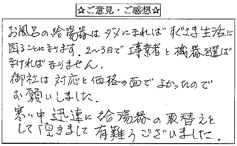 ☆ご意見・ご感想☆
お風呂の給湯器はダメになればすぐさま生活に
困ることになります。2〜3日で事業者と機器を選ば
なければなりません。
御社は対応と価格の面でよかったので
お願いしました。
寒い中迅速に給湯器の取替えを
して頂きまして有難うございました。